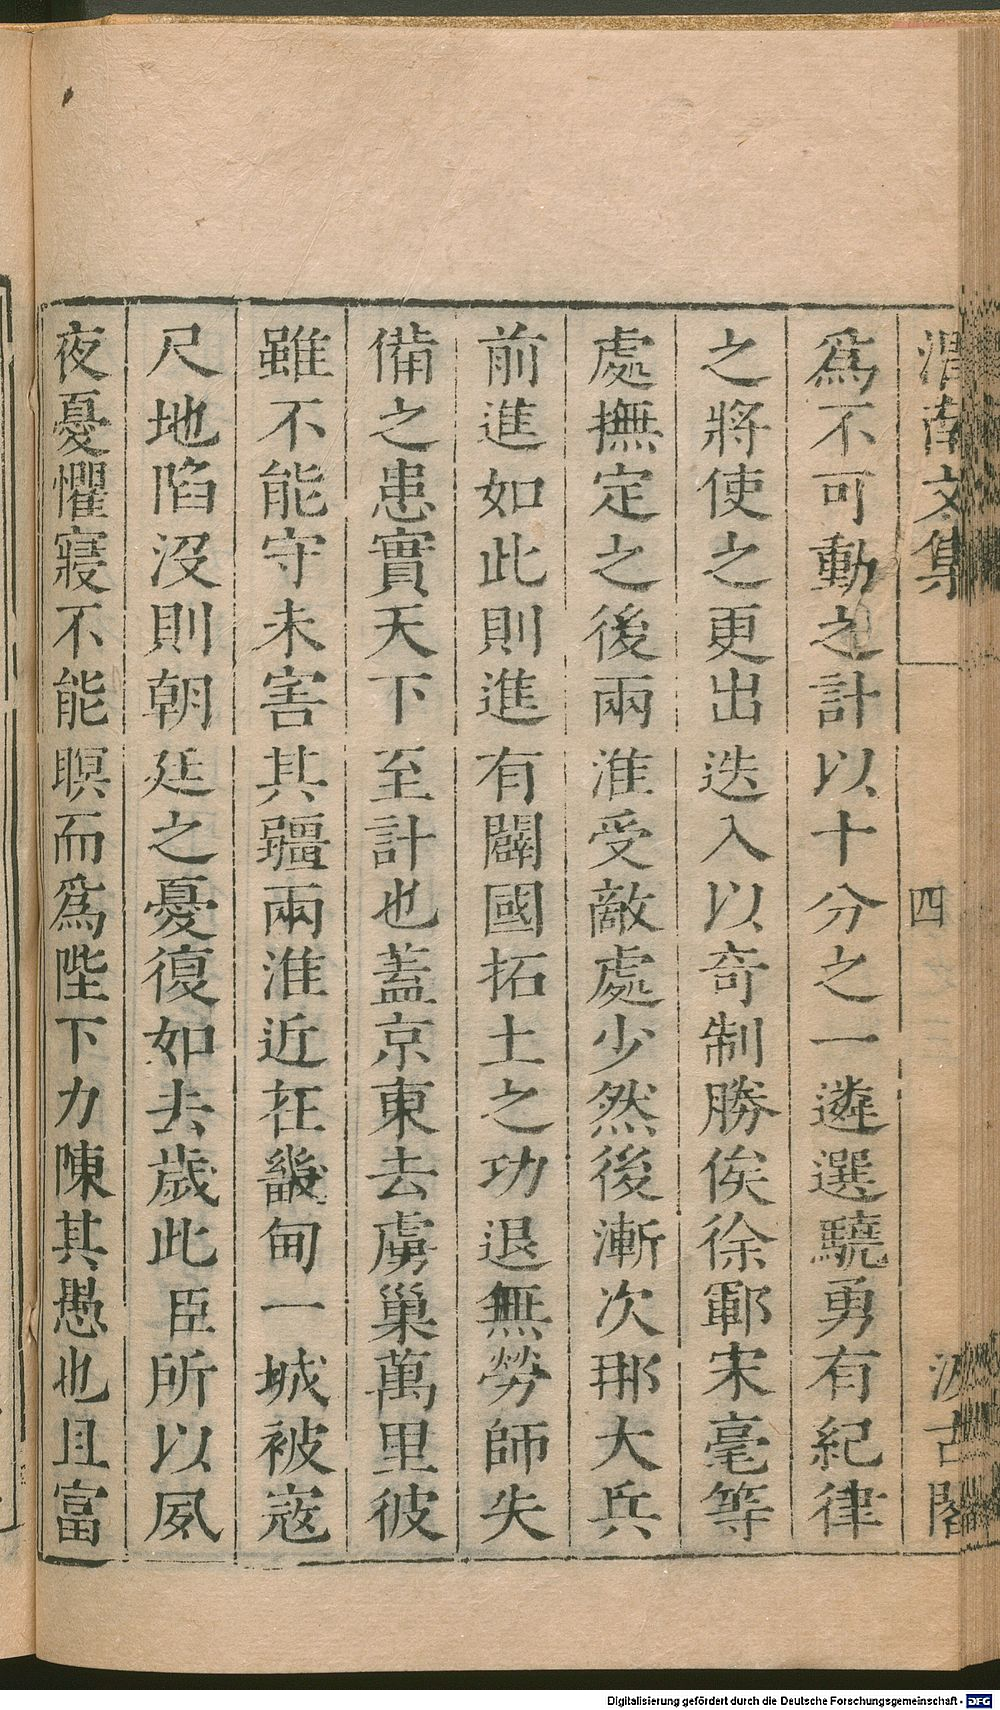 渭南文集
四
汲古閣
爲不可動之計以十分之一遴選驍勇有紀律
之將使之更出迭入以奇制勝俟徐鄆宋亳等
處撫定之後兩淮受敵處少然後漸次那大兵
前進如此則進有闢國拓土之功退無勞師失
備之患實天下至計也蓋京東去虜巢萬里彼
雖不能守未害其疆兩淮近在畿甸一城被寇
尺地陷沒則朝廷之憂復如去歲此臣所以夙
夜憂懼寢不能瞑而爲陛下力陳其愚也且富
Digitalisierung gefördert durch die Deutsche Forschungsgemeinschaft - DFG